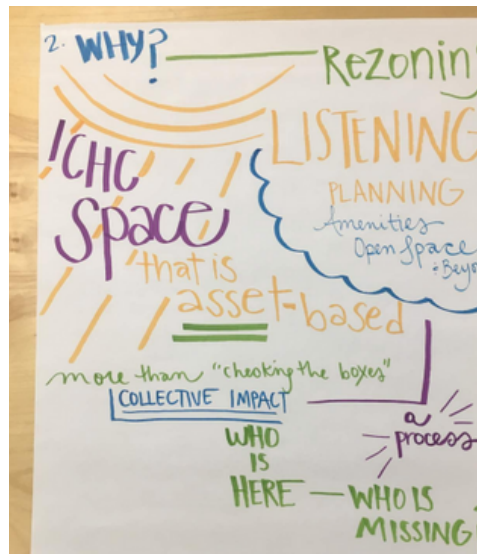 2. WHY?
Rezoning
LISTENING
PLANNING
Amenities
Open Space
+ Beyo
ICHC
Space
that is
asset-based
more than "checking the boxes"
COLLECTIVE IMPACT
a
process
WHO
IS
HERE — WHO IS
MISSING